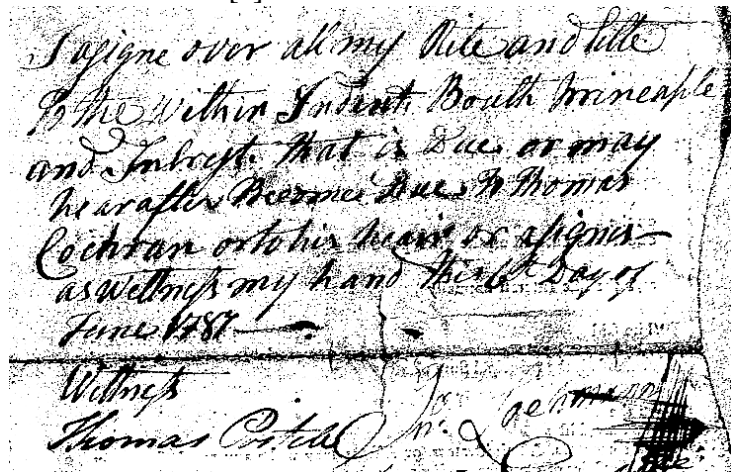 I asigne over all my Rite and title
To the within Indent Bouth Prineaple
and Intrest. that is Due or may
hearafter Become Due to Thomas
Cochran or to his heair or asignes
as wittness my hand this 6th Day of
June 1787
Wittness
Thomas Jno.